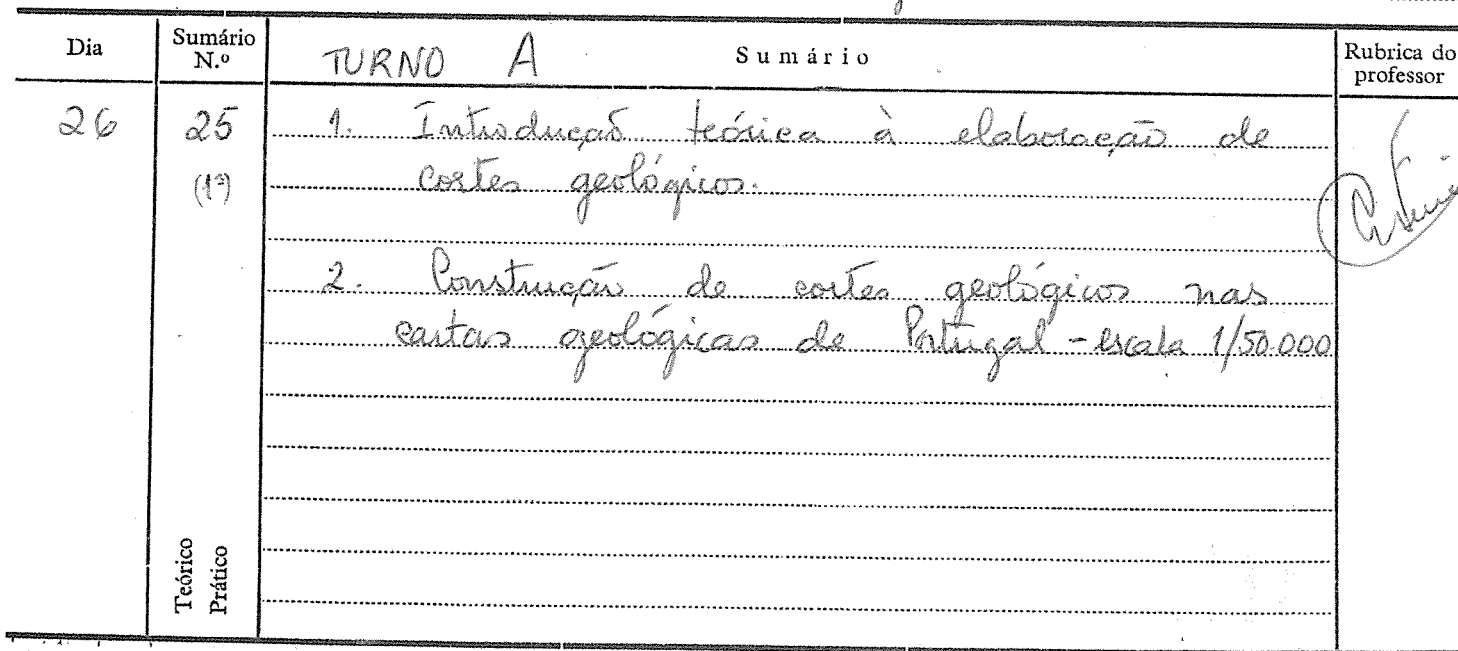 Dia
Sumário N.º
TURNO A
Sumário
Rubrica do professor
26
25
(1ª)
1. Introdução teórica à elaboração de
cortes geológicos.
2. Construção de cortes geológicos nas
cartas geológicas de Portugal - escala 1/50.000
Teórico
Prático